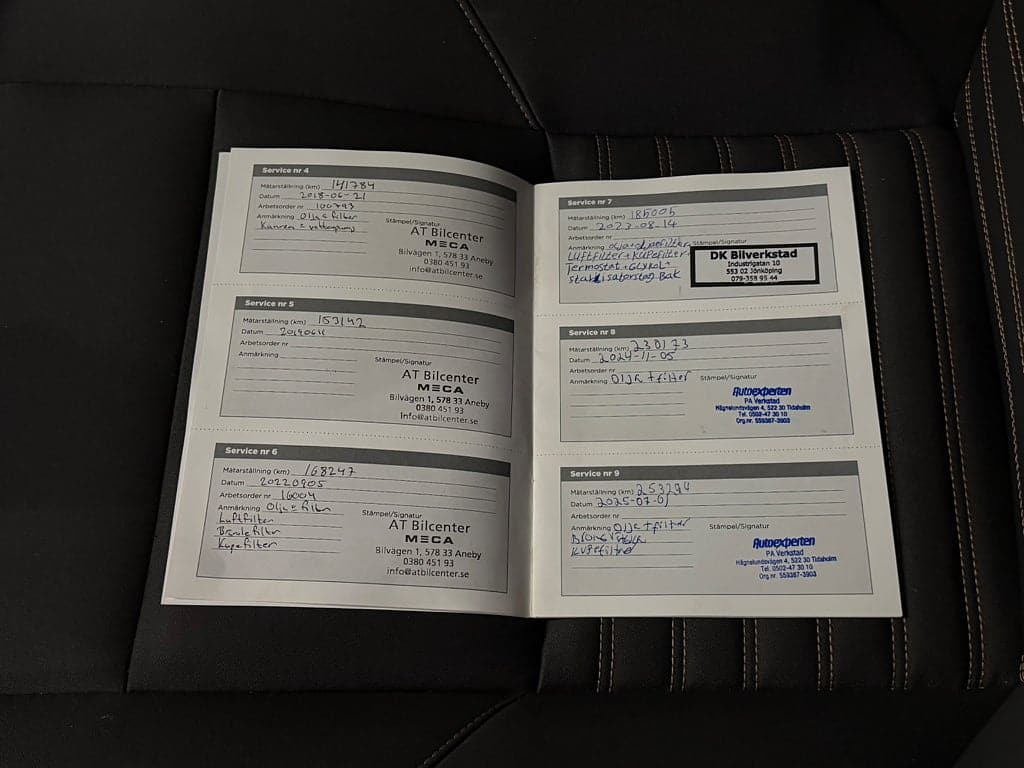 Service nr 4
Mätarställning (km) 141784
Datum 2018-06-21
Arbetsorder nr 100793
Anmärkning Olja & filter
Stämpel/Signatur
AT Bilcenter
MECA
Bilvägen 1, 578 33 Aneby
0380 451 93
info@atbilcenter.se
Service nr 5
Mätarställning (km) 153142
Datum 20190611
Arbetsorder nr
Anmärkning
Stämpel/Signatur
AT Bilcenter
MECA
Bilvägen 1, 578 33 Aneby
0380 451 93
Info@atbilcenter.se
Service nr 6
Mätarställning (km) 168247
Datum 20220905
Arbetsorder nr 16004
Anmärkning Olja & filter
Luftfilter
Bränslefilter
Kupefilter
Stämpel/Signatur
AT Bilcenter
MECA
Bilvägen 1, 578 33 Aneby
0380 451 93
info@atbilcenter.se
Service nr 7
Mätarställning (km) 185005
Datum 2023-08-14
Arbetsorder nr
Anmärkning olja+oljefilter
LUFTFilter+KUPeFilter+
Termostat+GLYKOL+
Bak
Stämpel/Signatur
DK Bilverkstad
Industrigatan 10
553 02 Jönköping
079-358 95 44
Service nr 8
Mätarställning (km) 230173
Datum 2024-11-05
Arbetsorder nr
Anmärkning Olja +filter
Stämpel/Signatur
Autoexperten
PA Verkstad
Hågnelundsvägen 4, 522 30 Tidaholm
Tel. 0502-47 30 10
Org.nr. 559387-3903
Service nr 9
Mätarställning (km) 253294
Datum 2025-07-01
Arbetsorder nr
Anmärkning Olja +filter
KUPefilter
Stämpel/Signatur
Autoexperten
PA Verkstad
Hågnelundsvägen 4, 522 30 Tidaholm
Tel. 0502-47 30 10
Org.nr. 559387-3903